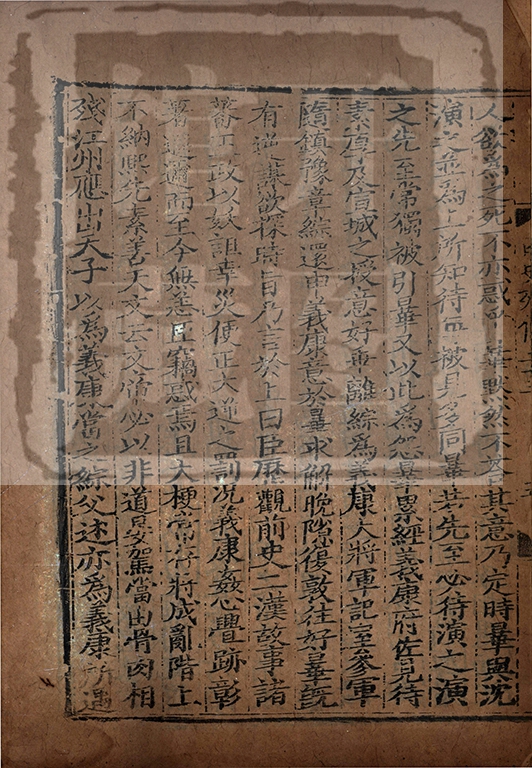 人欲爲之死不亦惑乎曄默然不荅其意乃定時曄與沈
演之並爲上所知待每被見多同曄若先至必待演之演
之先至常獨被引曄又以此爲怨曄累經義康府佐見待
素厚及宣城之授意好乖離綜爲義康大將軍記室參軍
隨鎮豫章綜還申義康意於曄求解晚隙復敦往好曄既
有逆謀欲探時旨乃言於上曰臣歷觀前史二漢故事諸
蕃王政以妖詛幸災便正大逆之罰况義康姦心釁跡彰
著遐邇而至今無恙臣竊惑焉且大梗常存將成亂階上
不納熙先素善天文云文帝必以非道晏駕當由骨肉相
殘江州應出天子以爲義康當之綜父述亦爲義康所遇